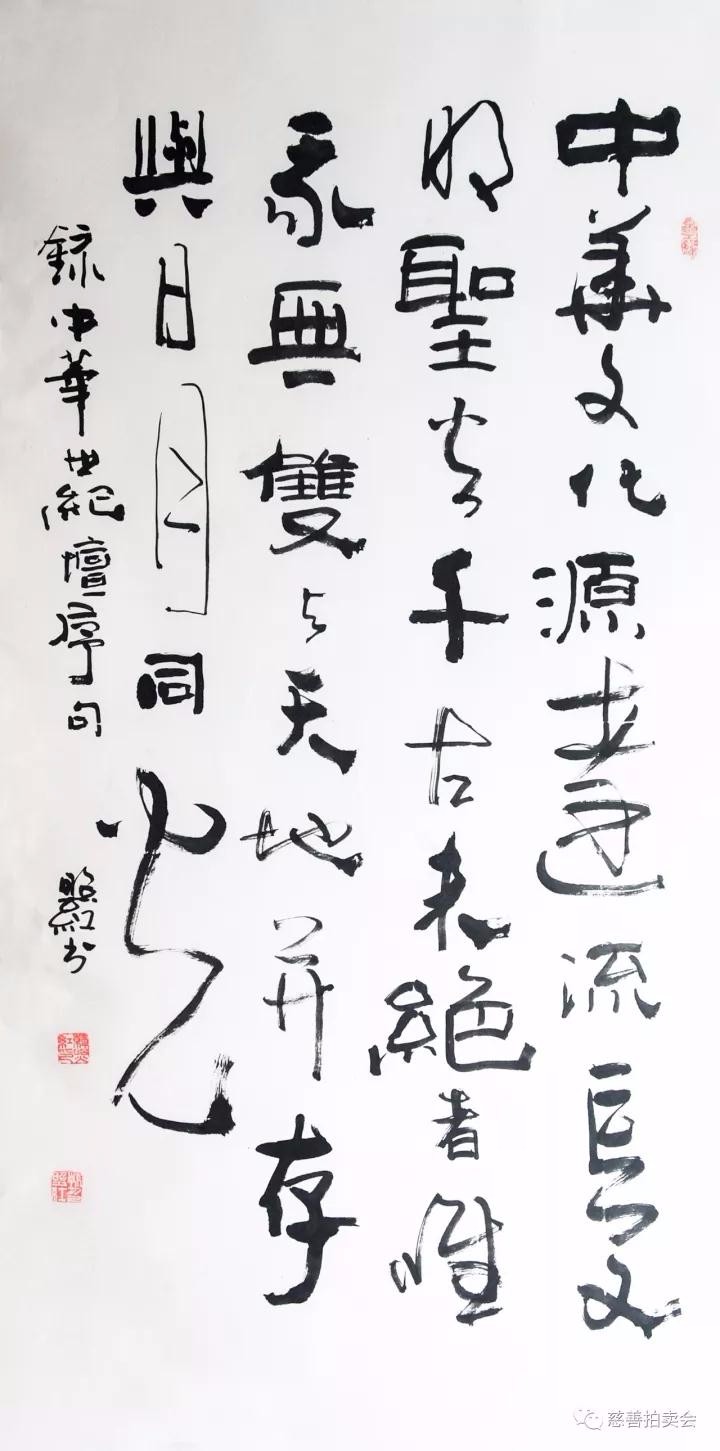 中華文化源遠流長文
明聖火千古未絕者唯
我無雙与天地并存
與日月同光
錄中華世紀壇序句
照紅书
慈善拍卖会